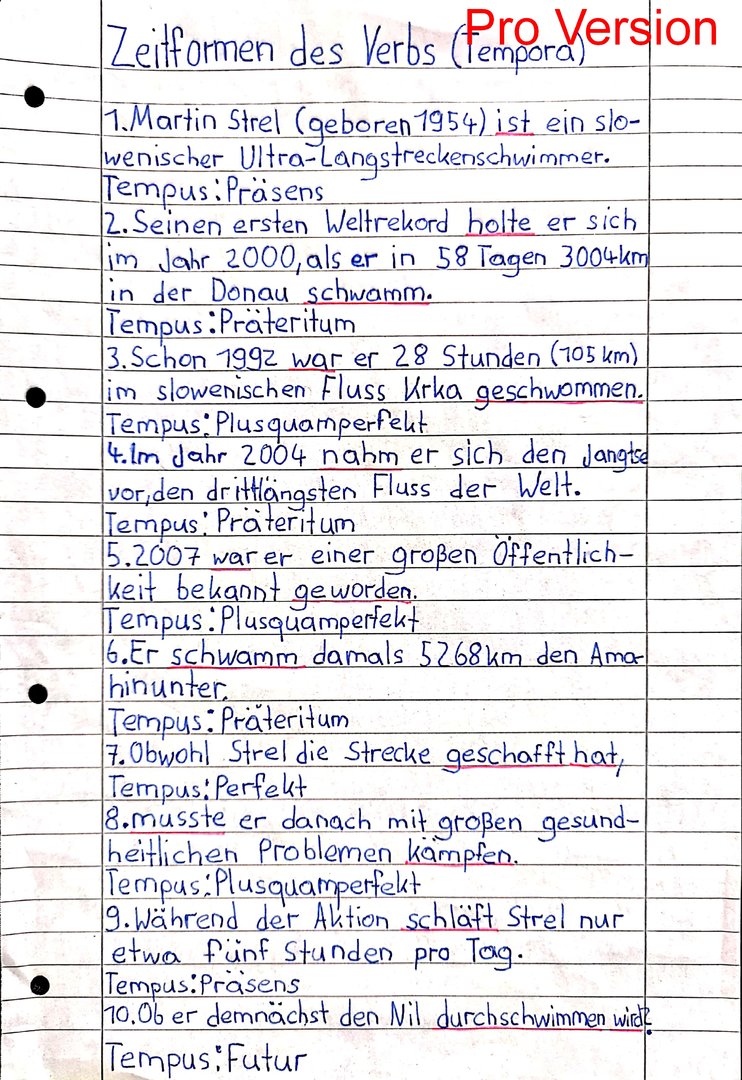 Pro Version
Zeitformen des Verbs (Tempora)
1.Martin Strel (geboren 1954) ist ein slo-
wenischer Ultra-Langstreckenschwimmer.
Tempus:Präsens
2.Seinen ersten Weltrekord holte er sich
im Jahr 2000, als er in 58 Tagen 3004km
in der Donau schwamm.
Tempus:Präteritum
3.Schon 1992 war er 28 Stunden (105 km)
im slowenischen Fluss Krka geschwommen.
Tempus:Plusquamperfekt
4.Im Jahr 2004 nahm er sich den Jangtse
vor, den drittlängsten Fluss der Welt.
Tempus:Präteritum
5.2007 war er einer großen Öffentlich-
keit bekannt geworden.
Tempus:Plusquamperfekt
6.Er schwamm damals 5268km den Ama
hinunter.
Tempus:Präteritum
7.Obwohl Strel die Strecke geschafft hat,
Tempus:Perfekt
8.musste er danach mit großen gesund-
heitlichen Problemen kämpfen.
Tempus:Plusquamperfekt
9.Während der Aktion schläft Strel nur
etwa fünf Stunden pro Tag.
Tempus:Präsens
10.Ob er demnächst den Nil durchschwimmen wird?
Tempus:Futur